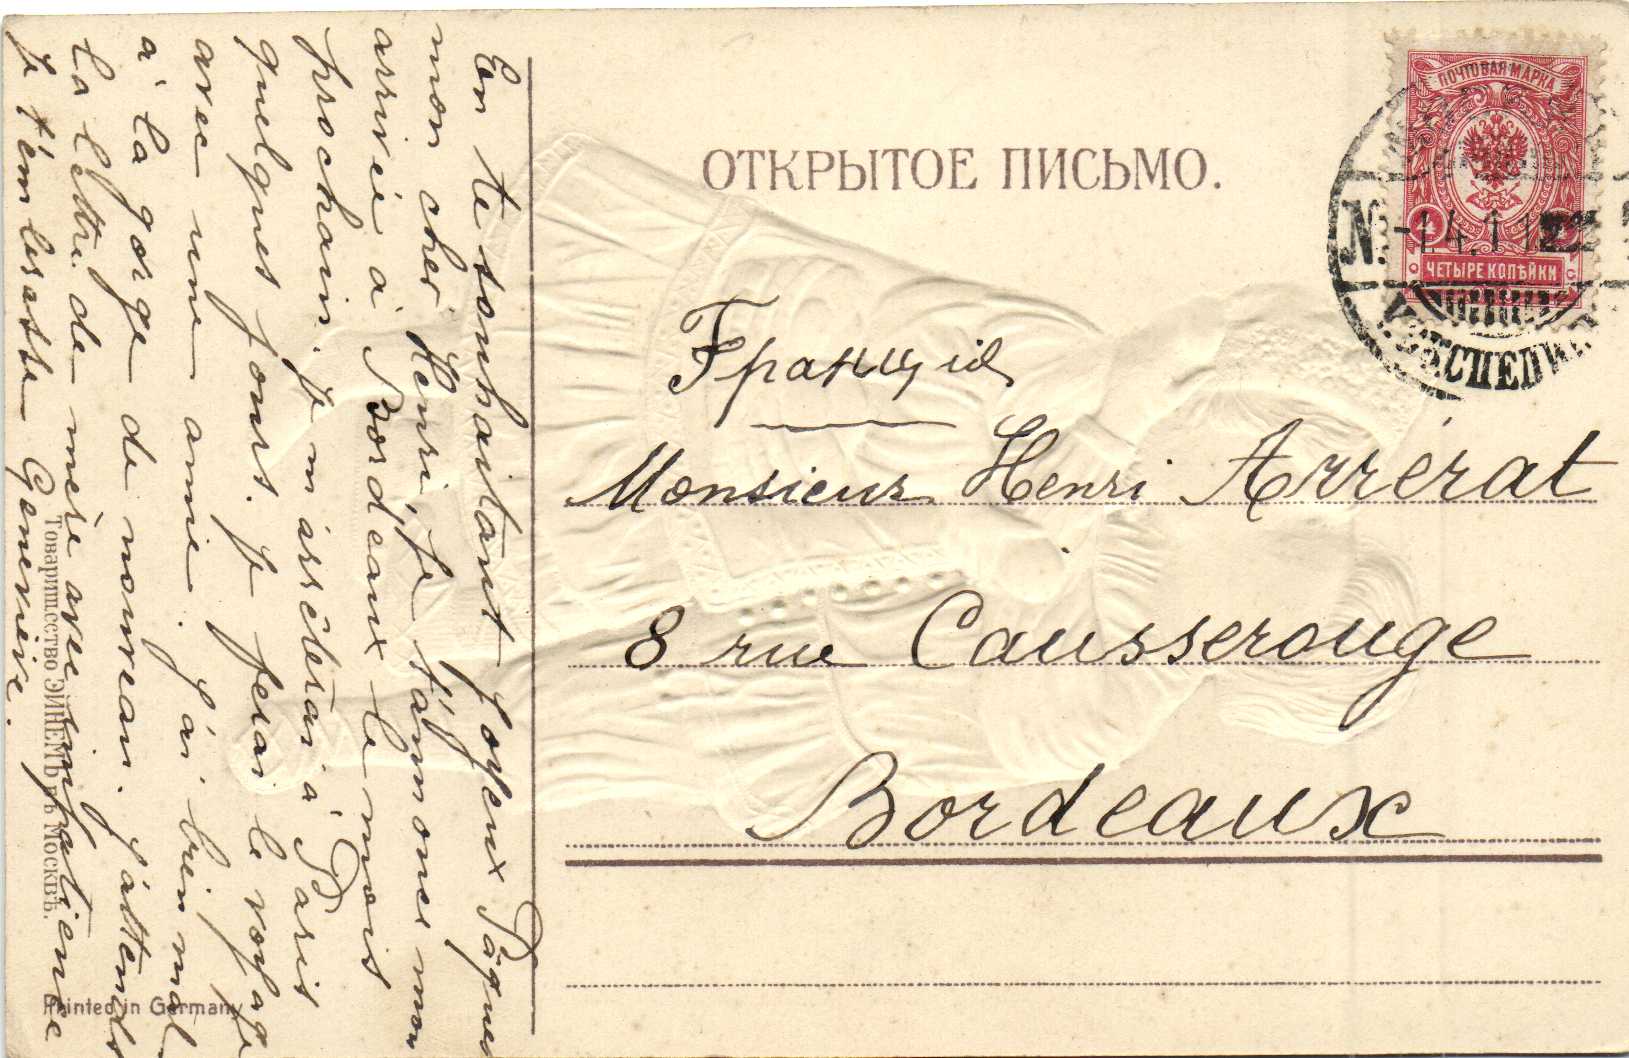 ОТКРЫТОЕ ПИСЬМО.
ПОЧТОВАЯ МАРКА
4
ЧЕТЫРЕ КОПѢЙКИ
Франція
Monsieur Henri Arrérat
8 rue Causserouge
Bordeaux
En te souhaitant joyeux Pâques
mon cher Henri, je t'annonce mon
arrivée à Bordeaux le mois
prochain. Je m'arrêterai à Paris
quelques jours. Je ferai le voyage
avec une amie. J'ai bien mal
à la gorge de nouveau. J'attends
la lettre de mère avec impatience
Je t'embrasse Geneviève.
Товарищество ЭЙНЕМЪ въ Москвѣ.
Printed in Germany